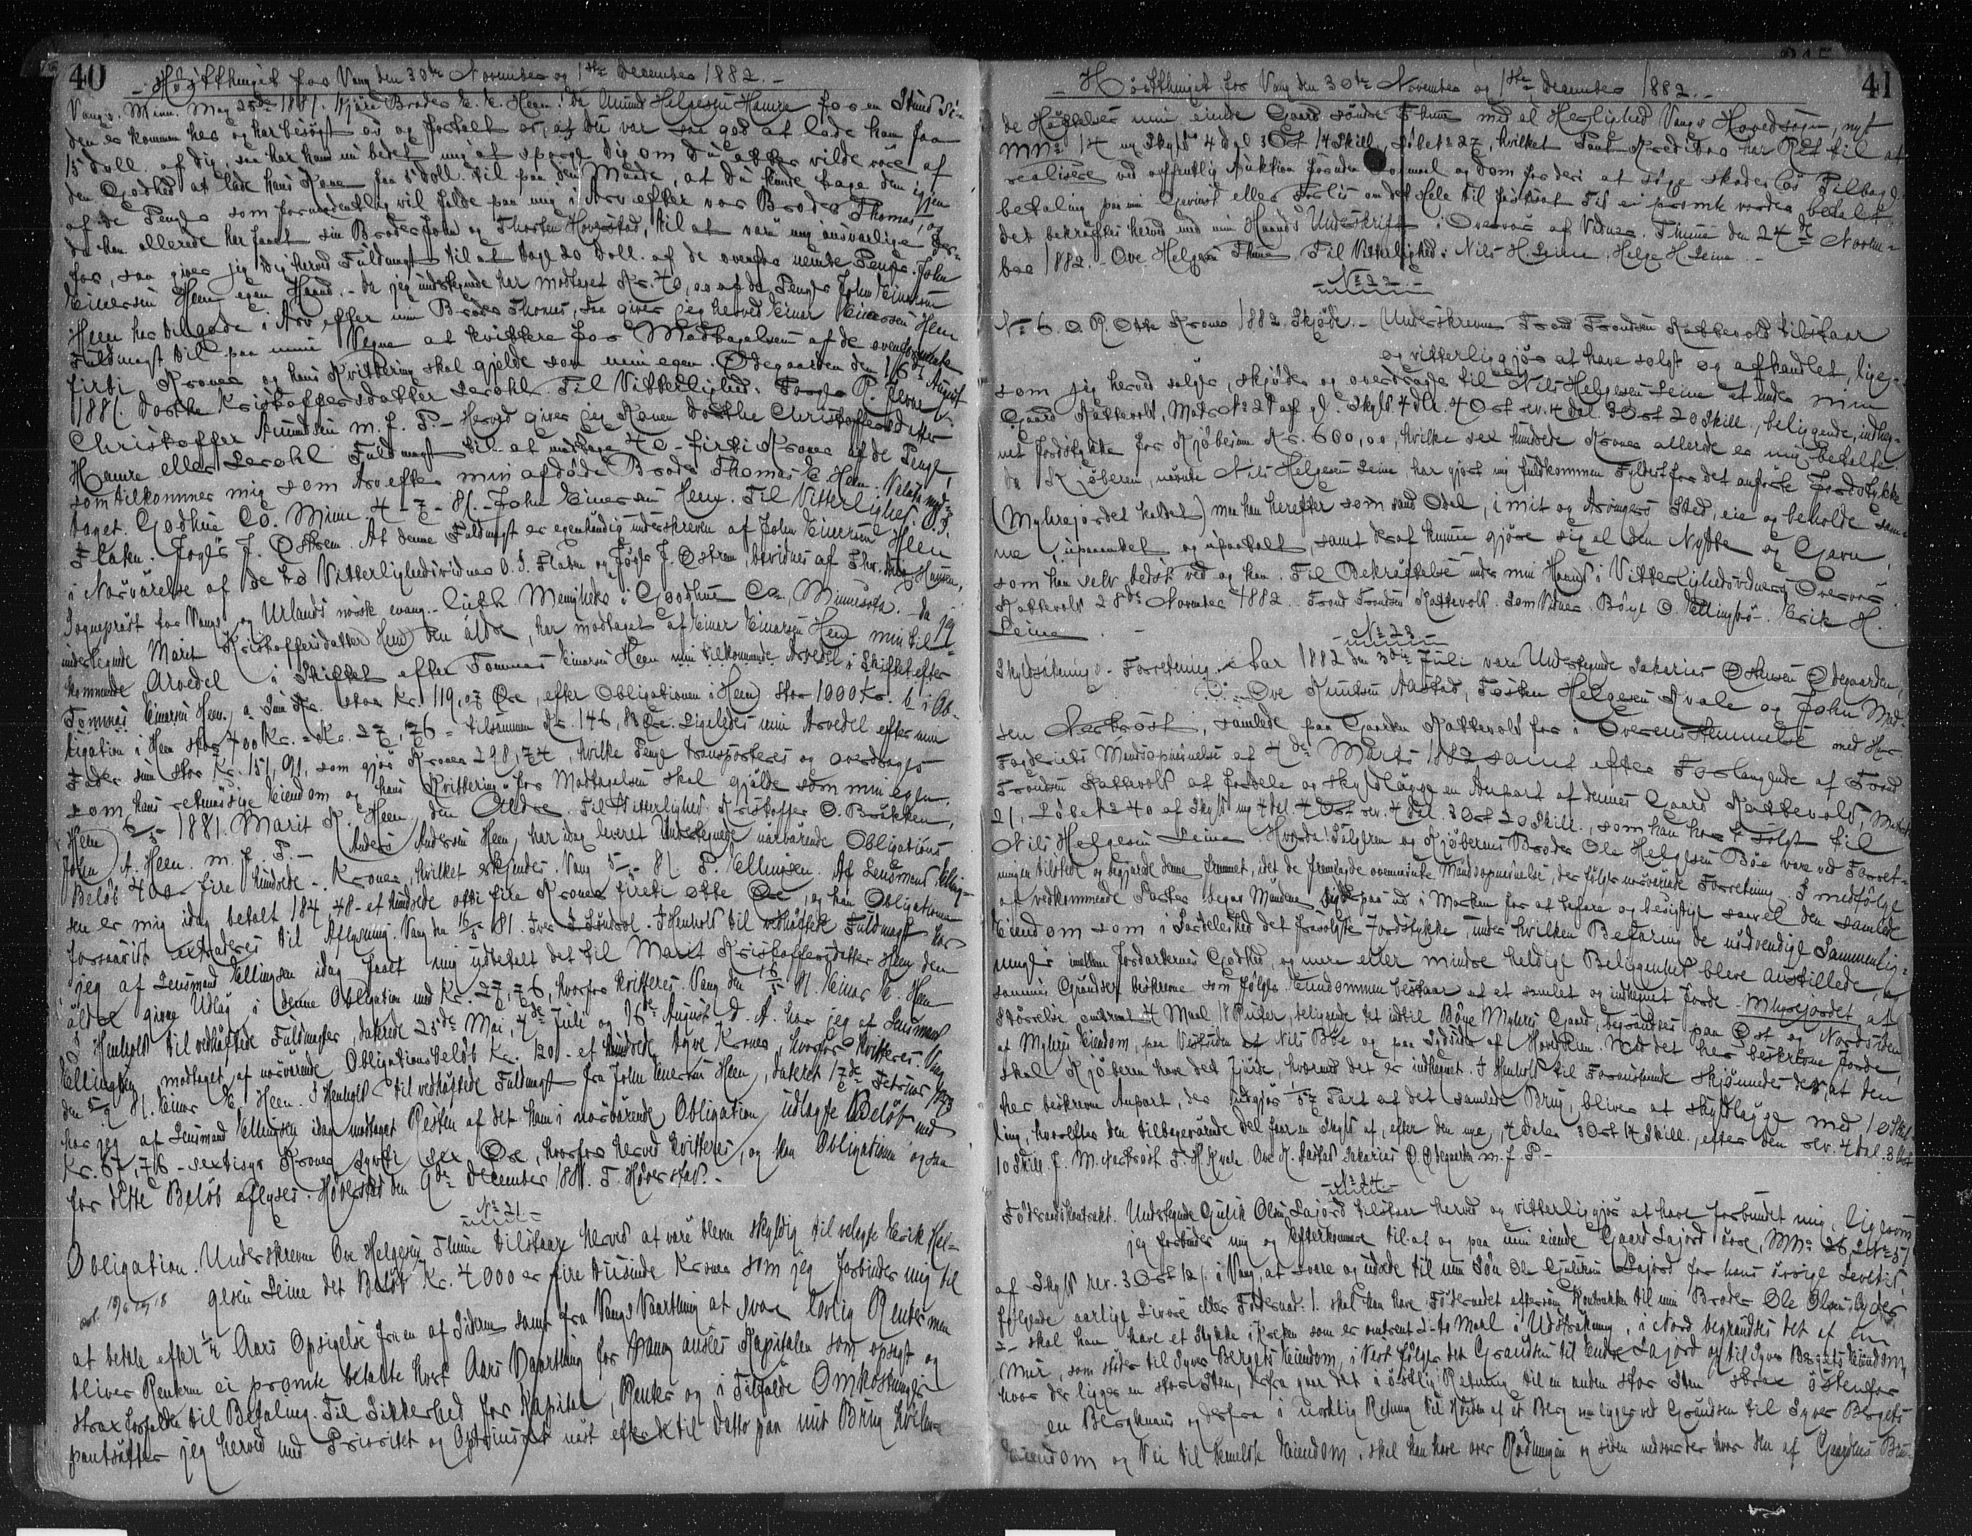 40
- Høstthinget for Vang den 30te November og 1ste December 1882. -
Vang. Minn. May 25de 1881. Kjære Broder E. E. Heen! Da Amund Helgesen Hamre for en Stund si-
den er kommen her og har besøgt os og fortalt os, at du var saa god at lade ham faa
15 Doll. af dig, saa har han nu bedet mig at spørge dig om du atter vilde være af
den Godhed at lade hans Kone faa 5 Doll. til paa den Maade, at du kunde tage den igjen
af de Penge som formodentlig vil falde paa mig i Arv efter vor Broder Thomas, og
da han allerede har faaet sin Broder John og Thosten Hovrstad, til at være mig ansvarlige der-
for, saa giver jeg dig herved Fuldmagt til at tage 20 Doll. af de ovenfor nevnte Penge. John
Einersen Heen egen Haand. - Da jeg undertegnede har modtaget Kr. 40,00 af de Penge John Einersen
Heen har tilgode i Arv efter min Broder Thomas, saa giver jeg herved Einar Einersen Heen
Fuldmagt til paa mine Vegne at kvittere for Modtagelsen af de ovennævnte
firti Kroner og hans Kvittering skal gjelde som min egen. Ødegaarden den 16de August
1881. Dorthe Kristoffersdatter Lerohl. Til Vitterlighed:
Christoffer Amundsen m. f. P. - Herved giver jeg Konen Dorthe Christoffersdatter
Hamre eller Lerohl Fuldmagt til at modtage 40 - firti Kroner af de Penge,
som tilkommer mig som Arv efter min afdøde Broder Thomas E. Heen.
taget. Goodhue Co. Minn. 4 - 7 - 81. - John Einersen Heen. Til Vitterlighed: O. J.
Flaten. Joger J. Østrem. At denne Fuldmagt er egenhændig underskreven af John Einersen Heen
i Nærværelse af de to Vitterlighedsvidner O. J. Flaten og Joger J. Østrem, bevidnes af Thv. Aug. Hansen,
Sogneprest for Vangs og Urlands norsk evang. - luth. Menigheder i Goodhue Co. Minnesota. - Da jeg
undertegnede Marit Kristoffersdatter Heen den ældre, har modtaget af Einar Einarsen Heen min til-
kommende Arvedel i Skiftet efter Tommas Einarsen Heen min tilkommende Arvedel i Skiftet efter
Tommas Einarsen Heen, a Sum Kr. stor Kr. 119,07 Øre, efter Obligationen i Heen stor 1000 Kr. b i Ob-
ligation i Heen stor 700 Kr. = Kr. 27,76 = tilsammen Kr. 146,83 Øre. Ligeledes min Arvedel efter min
Fader sum stor Kr. 151,91, som gjør Kroner 298,74, hvilke Penge transporteres og overdrages
som hans retmæssige Eiendom og hans Kvittering for Modtagelsen skal gjælde som min egen.
Heen 2/5 1881. Marit K. Heen, den Ældre. Til Vitterlighed: Kristoffer O. Bråkken,
John A. Heen. m. f. P. - Anders Andersen Heen har idag leveret Undertegnede nærværende Obligations
Beløb 400 - fire hundrede - Kroner, hvilket erkjendes. Vang 5/5 - 81. P. Ellingsen. Af Lensmand Elling-
sen er mig idag betalt 184,48 - et hundrede otti fire Kroner firti otte Øre, og kan Obligationen
forsaavidt extraderes til Aflysning. Vang den 16/5 - 81. I Henhold til vedhæftede Fuldmagt har
jeg af Lensmand Ellingsen idag faaet mig udbetalt det til Marit Kristoffersdatter Heen den
ældre givne Udlæg i denne Obligation med Kr. 27,76, hvorfor kvitteres. Vang den 16/5 81. Einar E. Heen
I Henhold til vedhæftede Fuldmagter, daterede 25de Mai, 4de Juli og 16de August d. A. har jeg af Lensmand
Ellingsen modtaget af nærværende Obligationsbeløb Kr. 120 - et hundrede tyve Kroner, hvorfor kvitteres. Vang
den 5/9 81. Einar E. Heen. I Henhold til vedhæftede Fuldmagt fra John Einersen Heen, dateret 17de Februar 1873
har jeg af Lensmand Ellingsen idag modtaget Resten af det ham i nærværende Obligation udlagte Beløb med
Kr. 67,76 - sextisyv Kroner sytti sex Øre, hvorfor herved kvitteres, og kan Obligationen ogsaa
for dette Beløb aflyses. Høverstad den 9de December 1881. T. Høverstad. -
No 21
Obligation. Underskrevne Ove Helgesen Thune tilstaar herved at være bleven skyldig til velagte Eerik Hel-
gesen Leine det Beløb Kr. 4000 er fire tusinde Kroner som jeg forbinder mig til
at betale efter 1/4 Aars Opsigelse fra en af Siderne samt fra Vangs Vaarthing at svare lovlig Renter men
bliver Renterne ei promte betalte hvert Aars Vaarthing for Vang ansees Kapitalen som opsagt og
strax forfalden til Betaling. Til Sikkerhed for Kapital, Renter og i Tilfælde Omkostninger
pantsætter jeg herved med Prioritet og Optrinsret næst efter de til Datto paa mit Brug hvilen-
41
- Høstthinget for Vang den 30te November og 1ste December 1882. -
de Hæftelser min eiende Gaard søndre Thune med al Herlighed Vangs Hovedsogn, nyt
MNo 14 ny Skyld 4 Dal 3 Ort 14 Skill, Løbe No 27, hvilket Pant Kreditor har Ret til at
realisere ved offentlig Auktion foruden Lovmaal og Dom for deri at søge skadesløs Tilbage-
betaling paa min Gevinst eller Forlis om det Hele til fastsat Tid ei promte vorder betalt.
Det bekræftes herved med min Haands Underskrift i Overvær af Vidner. Thune den 24de Novem-
ber 1882. Ove Helgesen Thune. Til Vitterlighed: Nils H. Leine. Helge H. Leine. -
No 22
No 6. O. R. Otte Kroner 1882. Skjøde. - Underskrevne Trond Trondsen Kattevold tilstaar
og vitterliggjør at have solgt og afhandlet, lige-
som jeg herved sælger, skjøder og overdrager til Nils Helgesen Leine et under min
Gaard Kattevold, Matr. No 21 af gl. Skyld 4 Dlr. 4 Ort rev. 4 Dal. 3 Ort 20 Skill., beliggende, indheg-
net Jordstykke for Kjøbesum Kr. 600,00, hvilke sex hundrede Kroner allerede er mig betalte.
Da Kjøberen, nævnte Nils Helgesen Leine har gjort mig fuldkommen Fyldest for det anførte Jordstykke
(Myhrejordet kaldet) men han herefter som sand Odel, i mit og Arvingers Sted, eie og beholde sam-
me upaaanket og upaatalt, samt deraf kunne gjøre sig al den Nytte og Gavn,
som han selv bedst ved og kan. Til Bekræftelse under min Haand i Vitterlighedsvidners Overvær.
Kattevold 28de November 1882. Trond Trondsen Kattevold. Som Vidner: Bøye O. Ellingbø. Eerik H.
Leine. -
No 23
Skyldsætnings-Forretning. Aar 1882 den 3die Juli vare Undertegnede Sakarias Østensen Ødegaarden,
Ove Knudsen Aastad, Tosten Helgesen Kvale og John Mad-
sen Nerkrost, samlede paa Gaarden Kattevold for i Overensstemmelse med Herr
Fogderiets Mandsopnævnelse af 4de Marts 1882 samt efter Forlangende af Trond
Trondsen Kattevold at fordele og skyldlægge en Anpart af dennes Gaard Kattevold, Mtr. No
21, Løbe No 40 af Skyld ny 4 Dal. 4 Ort rev. 4 Dal. 3 Ort 20 Skill., som han har solgt til
Nils Helgesen Leine. Hvorda: Sælgeren og Kjøberens Broder Ole Helgesen Bøe vare ved Forret-
ningen tilstede og begjærede denne fremmet, idet de fremlagde ovennævnte Mandsopnævnelse, der følger nærværende Forretning. I medfølge
af vedkommende Parter begav Mændene sig paa ud i Marken for at befare og besigtige saavel den samlede
Eiendom som i Særdeleshed det frasolgte Jordstykke, under hvilken Befaring de nødvendige Sammenlig-
ninger mellem Jordarternes Godhed og mere eller mindre heldige Beliggenhed bleve anstillede,
sammes Grændser beskrevne som følger: Eiendommen bestaar af et samlet og indhegnet Jorde - Myhrejordet af
Størrelse omtrent 4 Maal 1 Ruter, beliggende tet indtil Bøye Myhres Gaard, begrændses paa Øst og Nordsiden
af Myhres Eiendom, paa Vestsiden af Nils Bøe og paa Sydsiden af Hovedveien. Med det her beskrevne Jorde
skal Kjøberen have det Gjærde, hvormed det er indhegnet. I Henhold til Foranstaaende skjønnedes der, at den
her beskrevne Anpart, der udgjør 1/57 Part af det samlede Brug, bliver at skyldlægge med 10 Skil-
ling, hvorefter den tilbageværende Del faar en Skyld af, efter den nye, 4 Daler 3 Ort 14 Skill., efter den rev. 4 Dal. 3 Ort
10 Skill. J. M. Nerkrost T. H. Kvale Ove K. Aastad Sakarias Ø. Ødegaarden m. f. P. -
No 24
Føderaadskontrakt. Undertegnede Gulik Olsen Lajord tilstaar herved og vitterliggjør at have forbundet mig, ligesom
jeg forbinder mig og Efterkommere til af og paa min eiende Gaard Lajord øvre, MNo 26 LNo 57
af Skyld rev. 3 Ort 12 /. i Vang, at svare og udrede til min Søn Ole Guliksen Lajord for hans øvrige Levetid,
følgende aarlige Livøre eller Føderaad: 1. skal han have Føderaadet eftersom Kontrakten til min Broder Ole Olsen lyder
2 - skal han have et Stykke i Kroken som er omtrent 2 to Maal i Udstrækning, i Nord begrændses det af en
Mur, som støder til Syver Bergets Eiendom, i Vest følger det Grændsen til Endre Lajord og til Syver Bergets Eiendom,
hvor der ligger en stor Sten, derfra gaar det i østlig Retning til en anden stor Sten strax østenfor
en Bergknaus og derfra i nordlig Retning til Høiden af et Berg som ligger ved Grændsen til Syver Bergets
Eiendom og Vei til bemeldte Eiendom, skal han have over Rødningen og siden nedover der hvor den af Gaardens Bru-